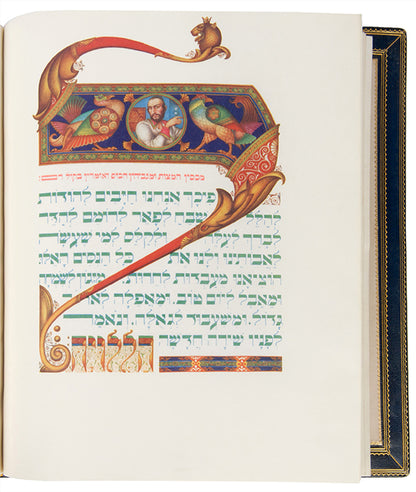 מכסין המצות ומגביהין הכוס ואומרין בקול
לפיכך אנחנו חיבים להודות
להלל לשבח לפאר לרומם להדר
לברך לעלה ולקלס למי שעשה
לאבותינו ולנו את כל הנסים
הוציאנו מעבדות לחרות
ומאבל ליום טוב ומאפלה לאור
גדול ומשעבוד לגאלה ונאמר
לפניו שירה חדשה
הללויה